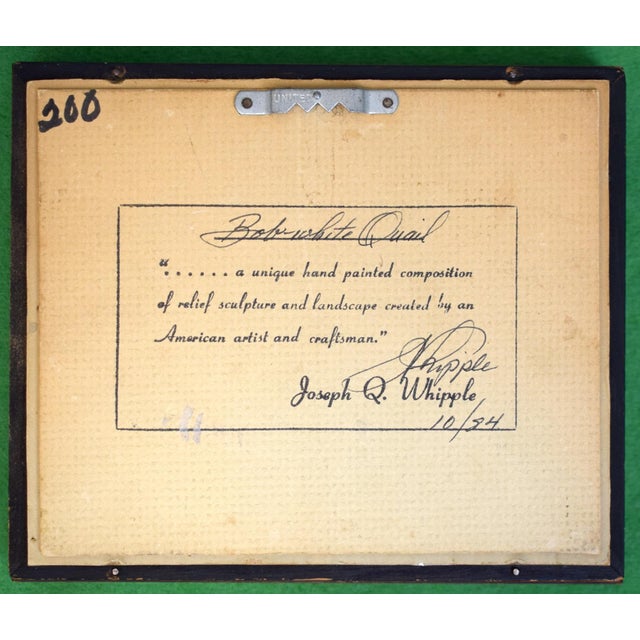 200
UNITED
Bob-white Quail
"...... a unique hand painted composition
of relief sculpture and landscape created by an
American artist and craftsman."
JWhipple
Joseph Q. Whipple
10/84